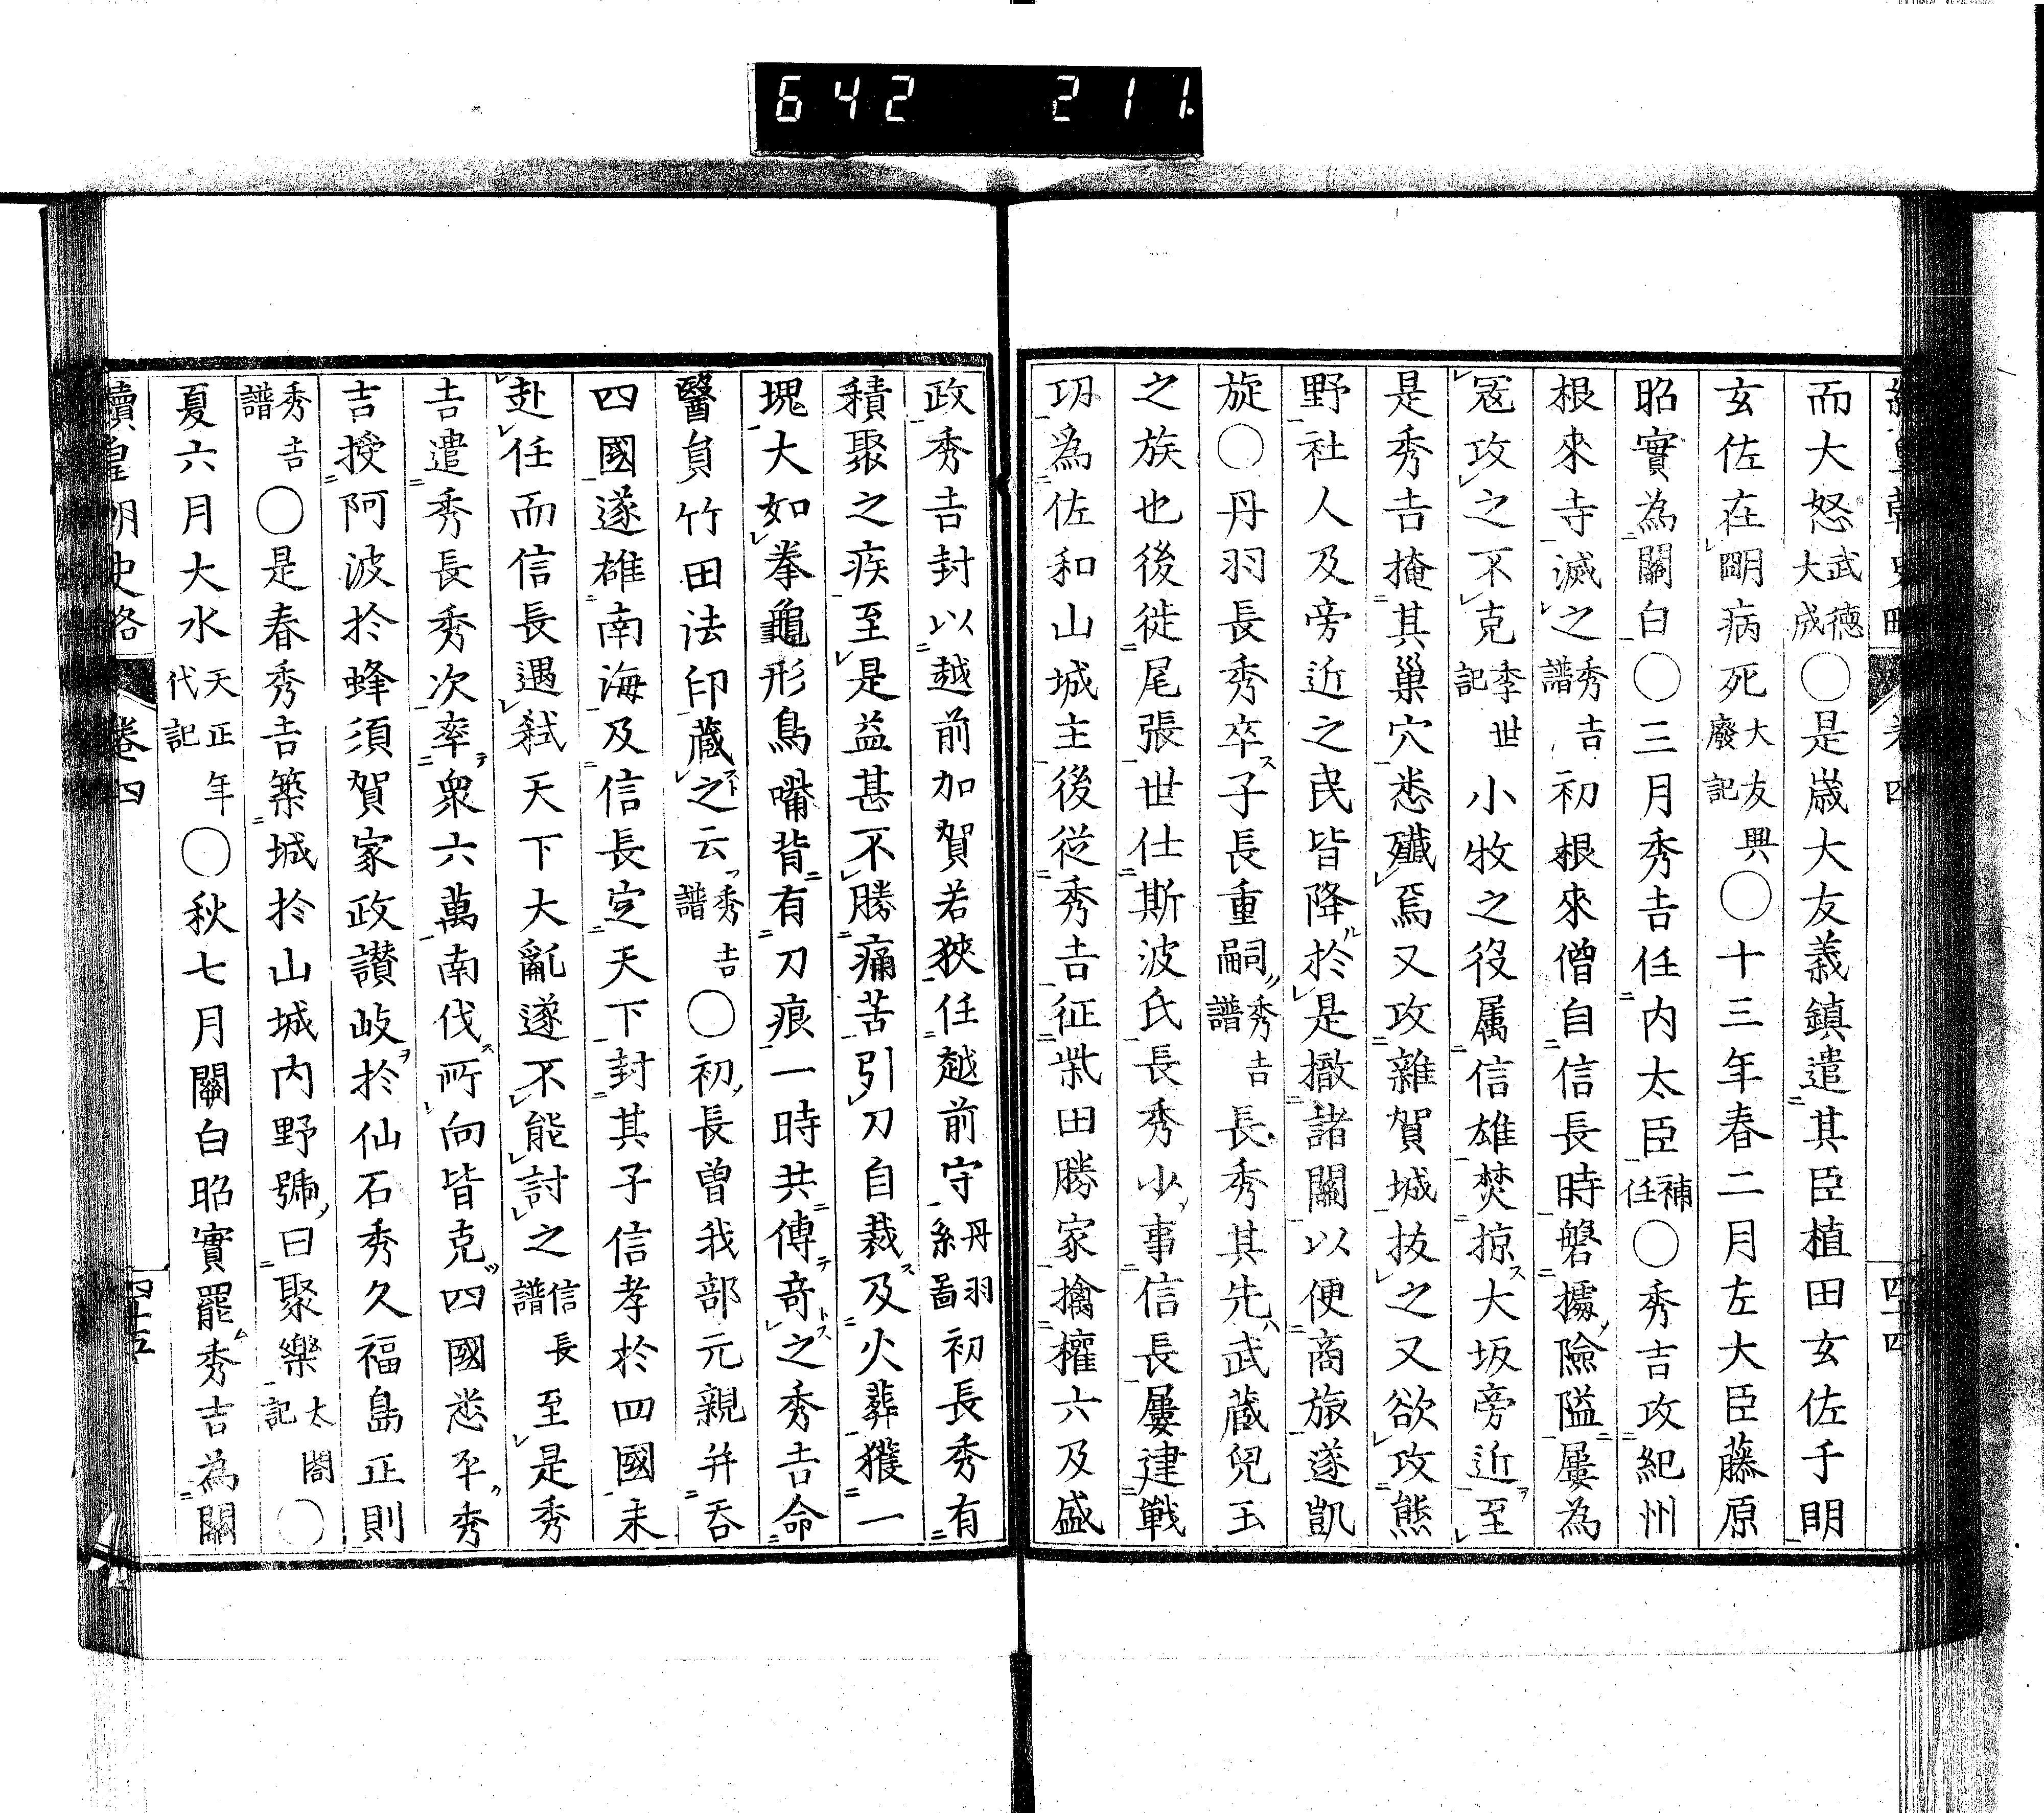 642 211.
而大怒武徳大成〇是歳大友義鎮遣其臣植田玄佐于明
玄佐在明病死大友興廢記〇十三年春二月左大臣藤原
昭實為關白〇三月秀吉任内大臣補任〇秀吉攻紀州
根來寺滅之秀吉譜初根來僧自信長時磐據險隘屢為
冦攻之不克季世記小牧之役属信雄焚掠大坂旁近至
是秀吉掩其巢穴悉殲焉又攻雜賀城抜之又欲攻熊
野社人及旁近之民皆降於是撤諸關以便商旅遂凱
旋〇丹羽長秀卒子長重嗣秀吉譜長秀其先武藏兒玉
之族也後徙尾張世仕斯波氏長秀少事信長屢建戰
功爲佐和山城主後從秀吉征柴田勝家擒權六及盛
政秀吉封以越前加賀若狹任越前守丹羽系圖初長秀有
積聚之疾至是益甚不勝痛苦引刀自裁及火葬獲一
塊大如拳龜形鳥嘴背有刀痕一時共傳竒之秀吉命
醫負竹田法印藏之云秀吉譜〇初長曽我部元親并呑
四國遂雄南海及信長定天下封其子信孝於四國未
赴任而信長遇弑天下大亂遂不能討之信長譜至是秀
吉遣秀長秀次率衆六萬南伐所向皆克四國悉平秀
吉授阿波於蜂須賀家政讃岐於仙石秀久福島正則
秀吉譜〇是春秀吉築城於山城内野號曰聚樂太閤記〇
夏六月大水天正年代記〇秋七月關白昭實罷秀吉為關
續皇朝史略 卷四 四十五